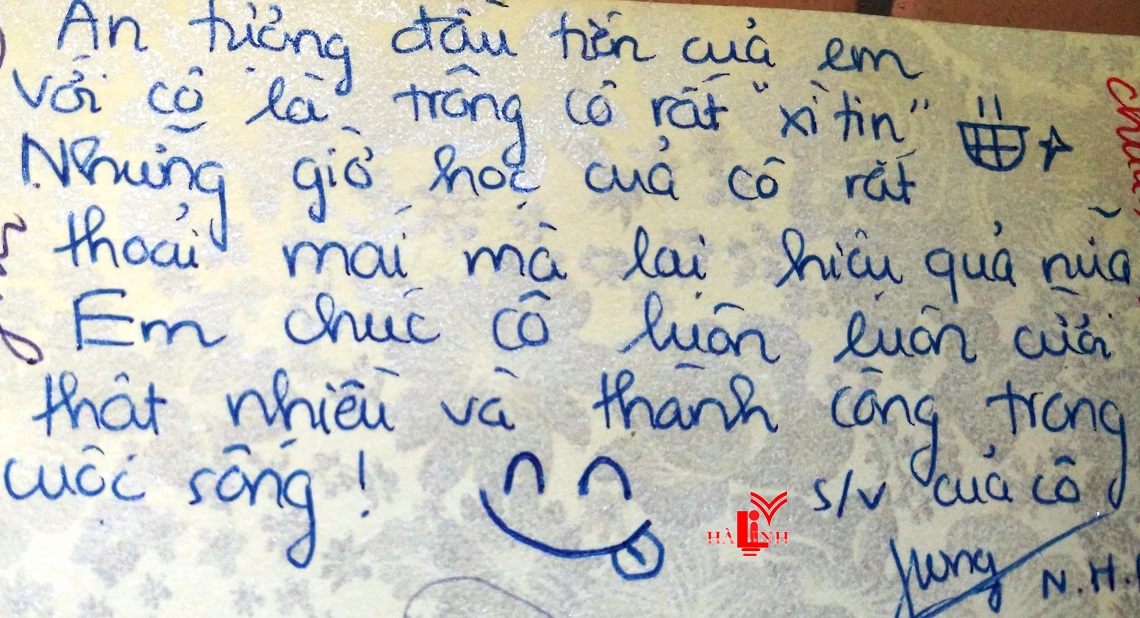 Ấn tượng đầu tiên của em
với cô là trông cô rất "xì tin"
Những giờ học của cô rất
thoải mái mà lại hiệu quả nữa
Em chúc cô luôn luôn cười
thật nhiều và thành công trong
cuộc sống!
s/v của cô
HÀ LINH
N.H.